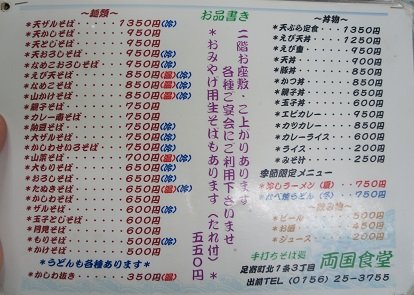 お品書き
～麺類～
*天ザルそば・・・・・1350円(冷)
*天かしそば・・・・・・950円
*天とじそば・・・・・・950円
*天おろしそば・・・・・950円(冷)
*なめこおろしそば・・・950円(冷)
*えび天そば・・・・・・850円(温)(冷)
*なめこそば・・・・・・850円(温)(冷)
*山かけそば・・・・・・850円(温)(冷)
*親子そば・・・・・・・850円
*カレー南そば・・・・・850円
*納豆そば・・・・・・・850円(冷)
*大ザルそば・・・・・・850円(冷)
*かしわせいろそば・・・850円(冷)
*山菜そば・・・・・・・700円(温)(冷)
*大もりそば・・・・・・750円(冷)
*おろしそば・・・・・・650円(冷)
*たぬきそば・・・・・・650円(温)(冷)
*かしわそば・・・・・・650円
*ザルそば・・・・・・・650円(冷)
*玉子とじそば・・・・・650円
*月見そば・・・・・・・550円
*もりそば・・・・・・・550円(冷)
*かけそば・・・・・・・500円
*うどんも各種あります*
*かしわ抜き・・・・・・350円
二階お座敷 ご上がりあります
各種ご宴会にご利用下さいませ
*おみやげ用生そばもあります(たれ付)
五五〇円
～丼物～
*天ぷら定食・・・1350円
*えび天丼・・・・・950円
*えび重・・・・・・950円
*豚丼・・・・・・・850円
*かつ丼・・・・・・850円
*親子丼・・・・・・850円
*玉子丼・・・・・・650円
*エビカレー・・・・950円
*カツカレー・・・・850円
*カレーライス・・・600円
*ライス・・・・・・200円
*みそ汁・・・・・・250円
季節限定メニュー
*冷しラーメン(夏)・・750円
*なべ焼うどん(冬)・・750円
～飲み物～
*ビール・・・・・・500円
*お酒・・・・・・・450円
*ジュース・・・・・200円
手打ちそば処 両国食堂
足寄町北1条3丁目
出前TEL(0156)25-3755